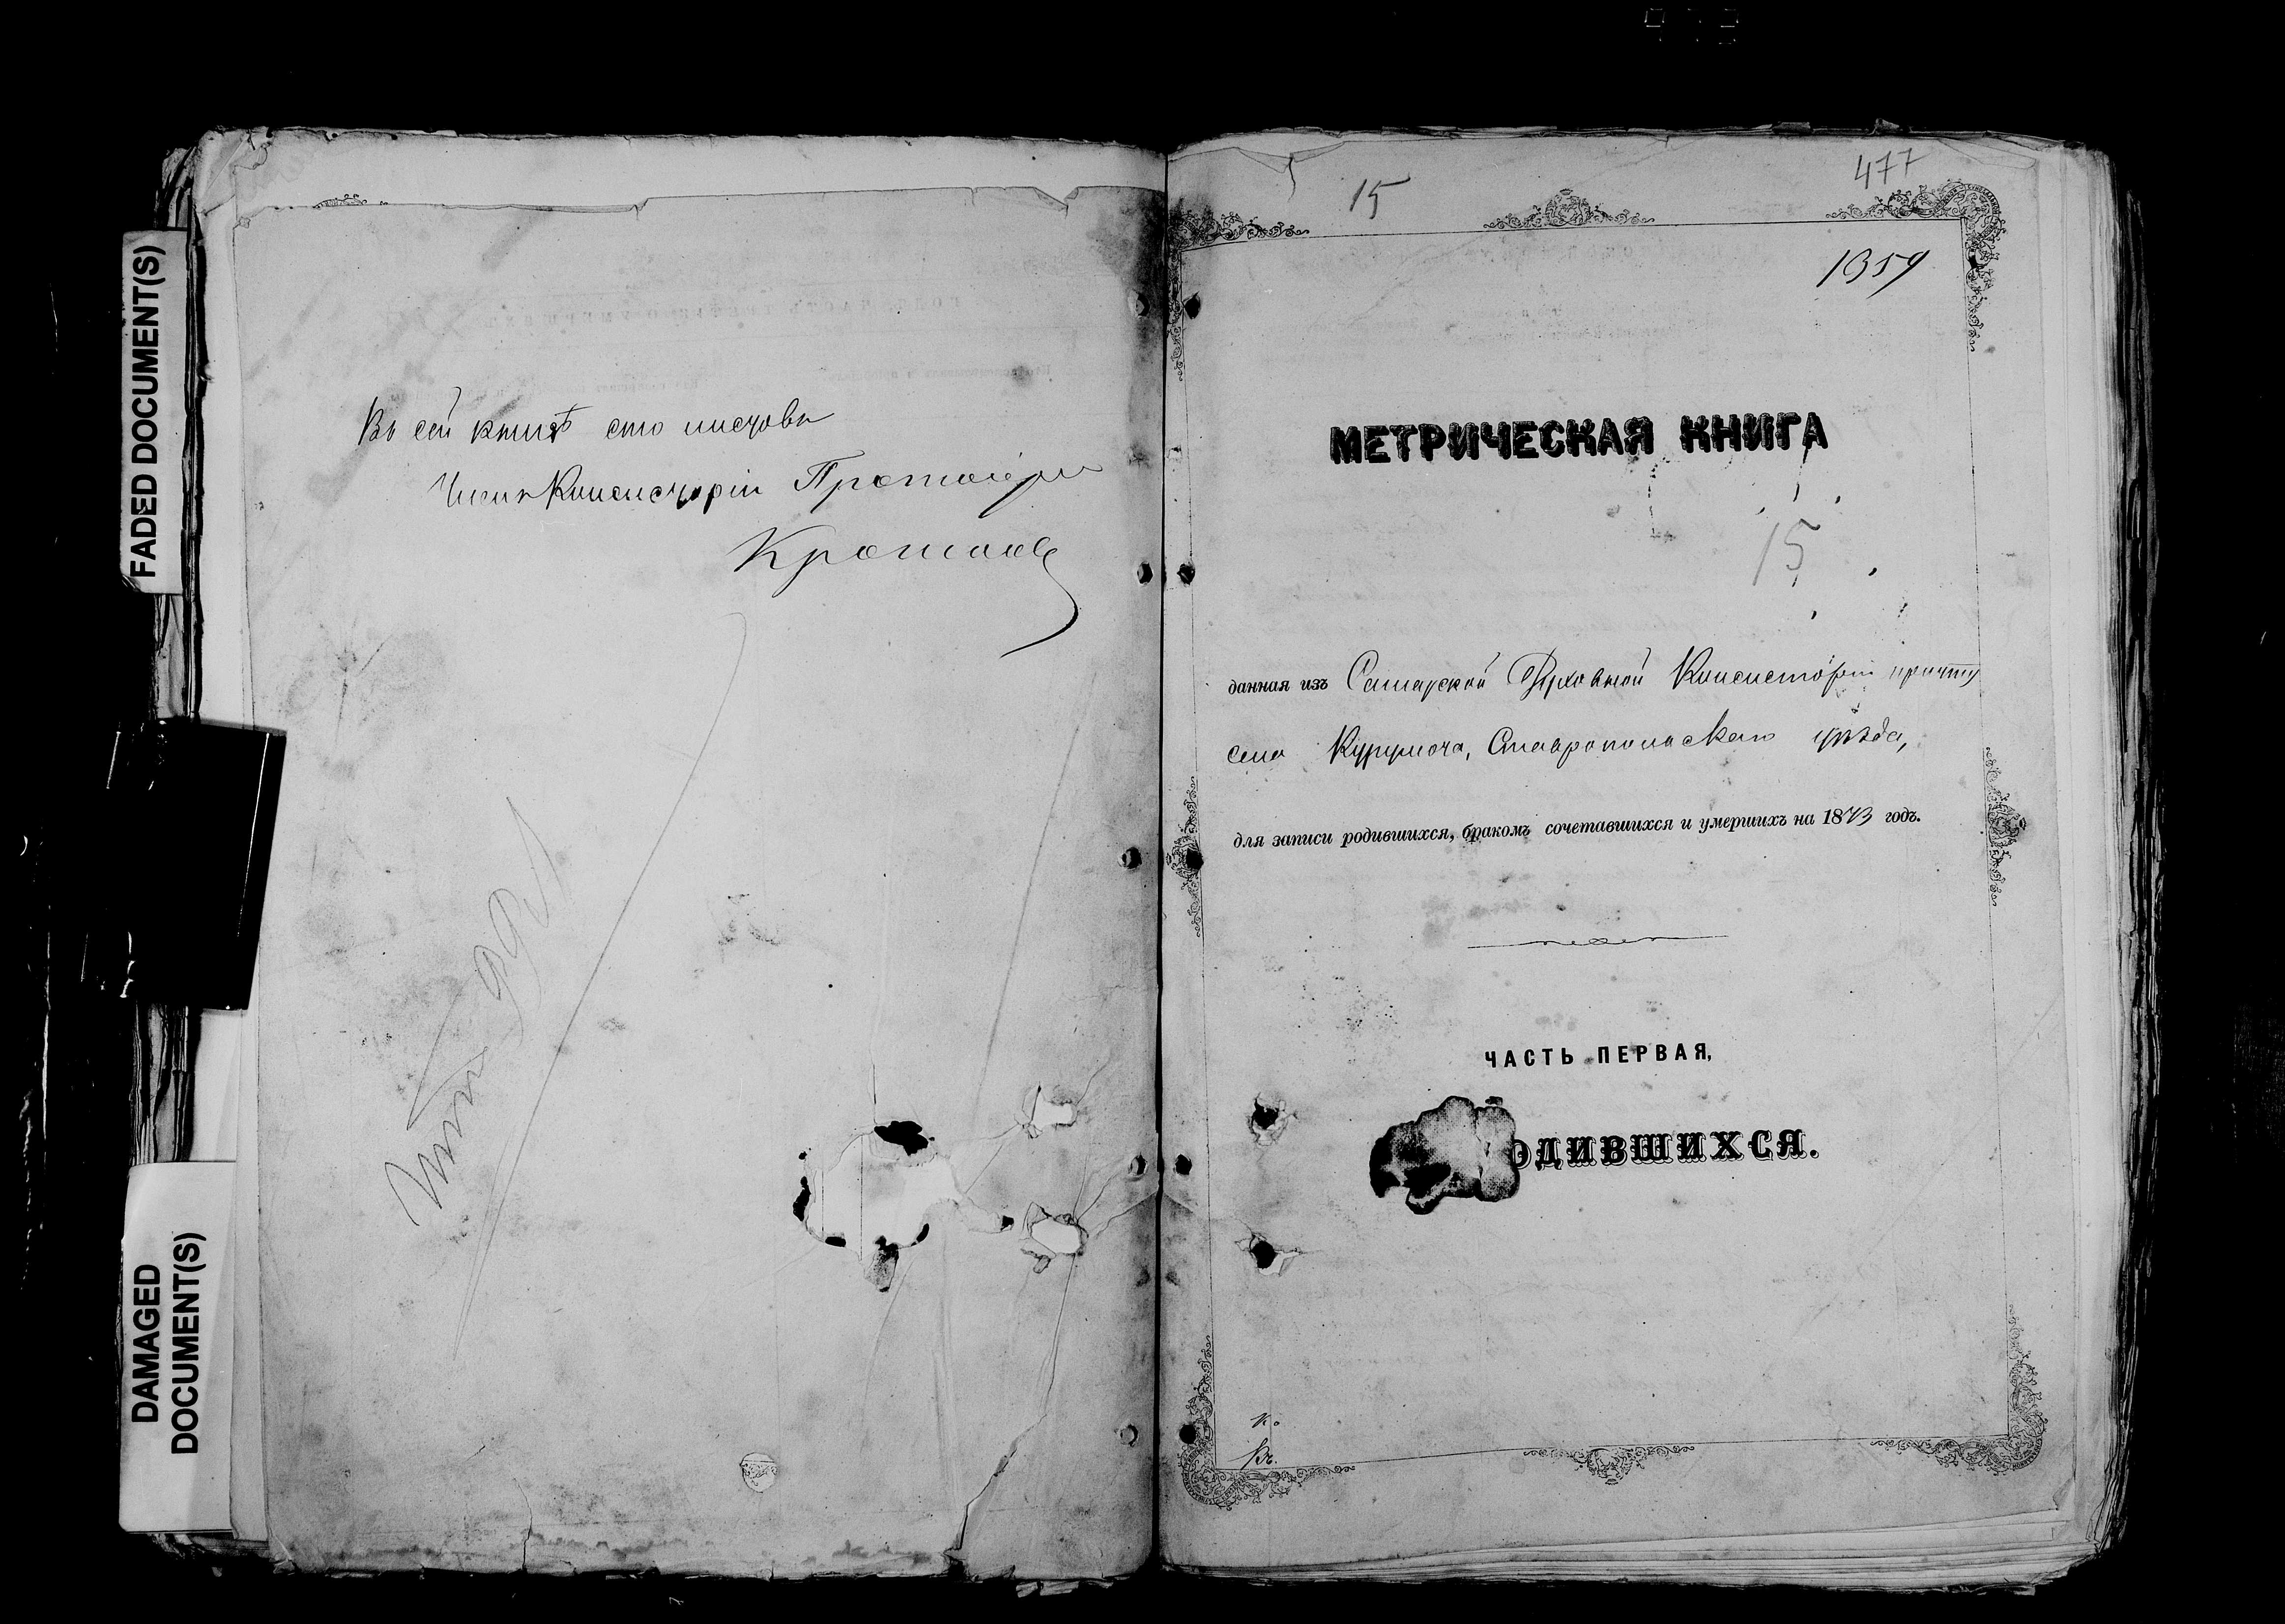 FADED DOCUMENT(S)
DAMAGED
DOCUMENT(S)
Въ сей книгѣ сто листовъ
Членъ Консисторіи Протоіерей
15
477
1359
МЕТРИЧЕСКАЯ КНИГА
15
данная изъ Самарской Духовной Консисторіи причту
села Курумоча, Ставропольскаго уѣзда,
для записи родившихся, бракомъ сочетавшихся и умершихъ на 1873 годъ.
ЧАСТЬ ПЕРВАЯ,
ОДИВШИХСЯ.